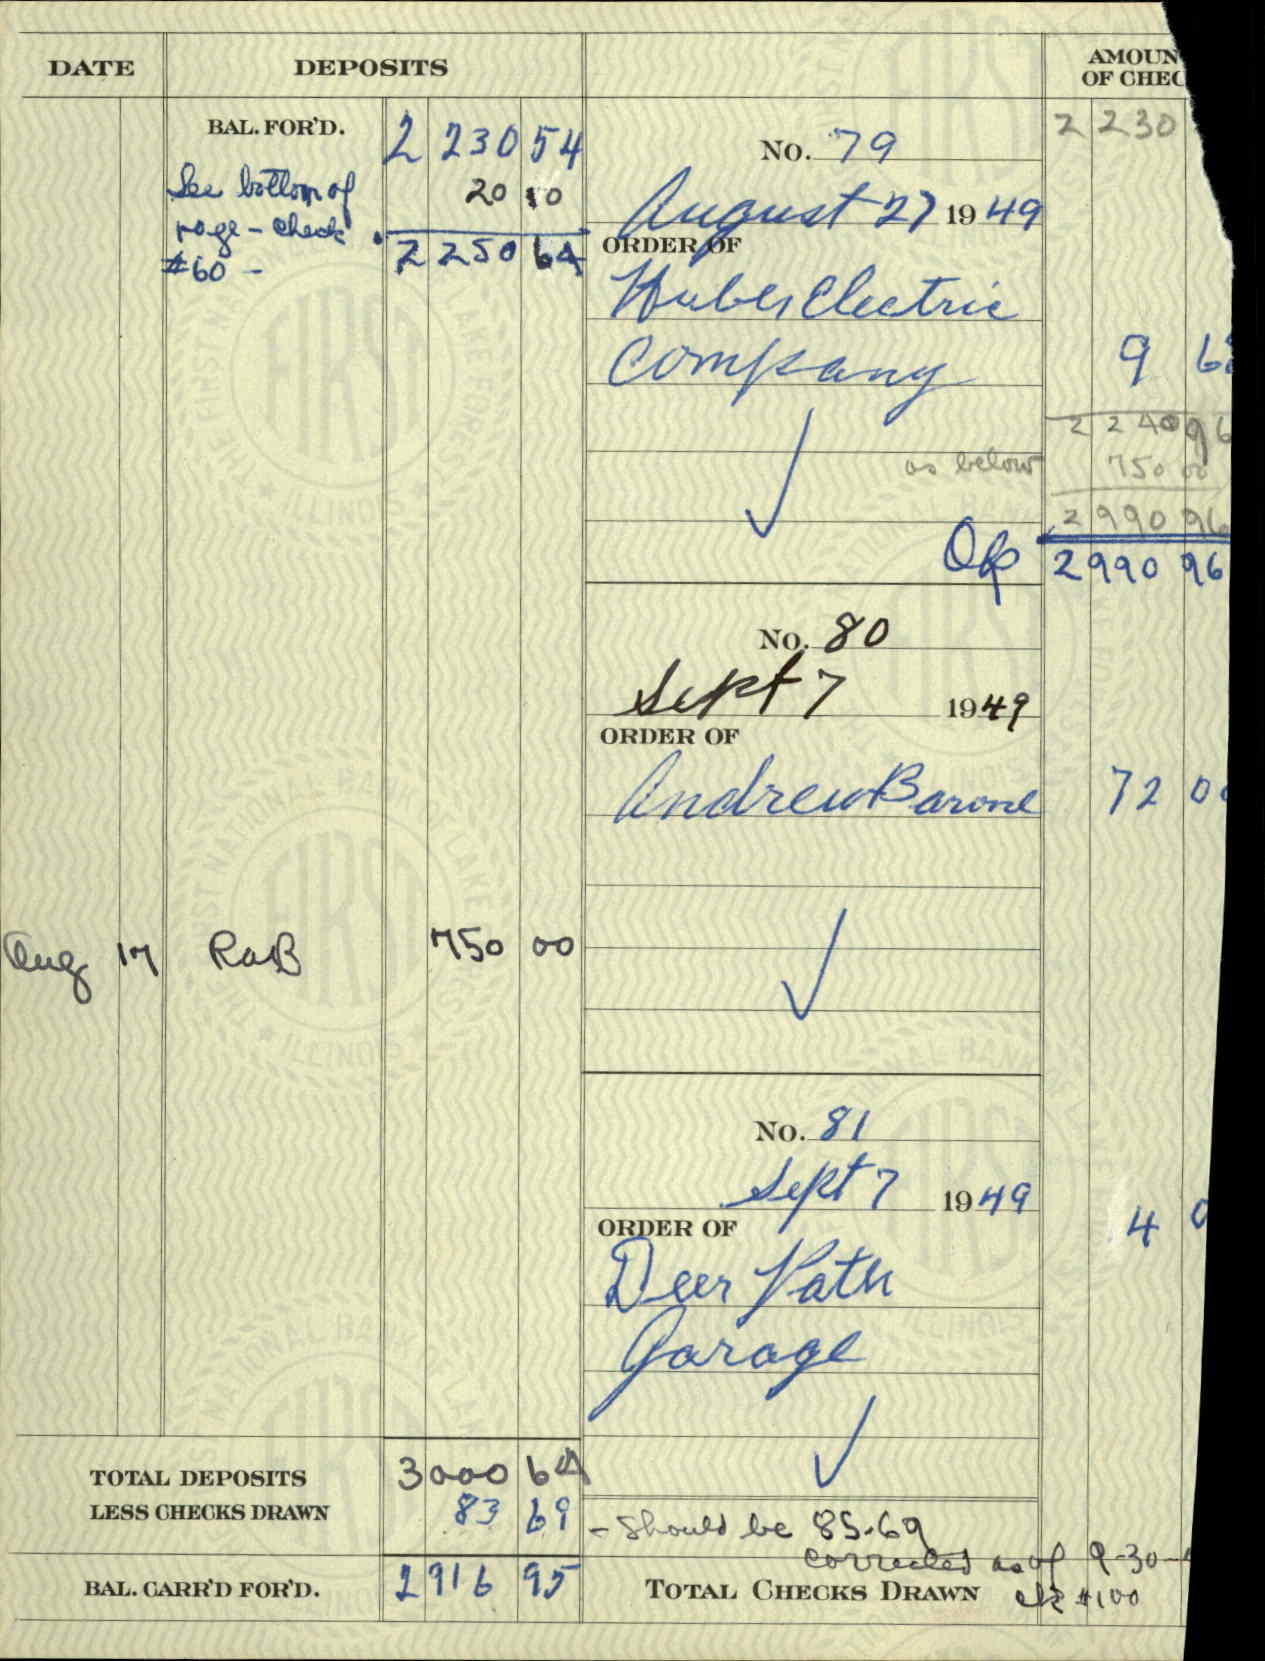 DATE DEPOSITS AMOUN
OF CHEC
BAL. FOR'D. 2 230 54
See bottom of 20 10
page - check
#60 - 2 250 64
No. 79 2 230
August 27 1949
ORDER OF
Huber Electric
Company 9 68
2 240 96
as below 750 00
2 990 96
OK 2990 96
No. 80
Sept 7 1949
ORDER OF
Andrew Barone 72 00
Aug 17 RoB 750 00
No. 81
Sept 7 1949
ORDER OF 4 0
Deer Path
Garage
TOTAL DEPOSITS 3000 64
LESS CHECKS DRAWN 83 69 - should be 85.69
corrected as of 9-30-
BAL. CARR'D FOR'D. 2916 95 TOTAL CHECKS DRAWN ck #100